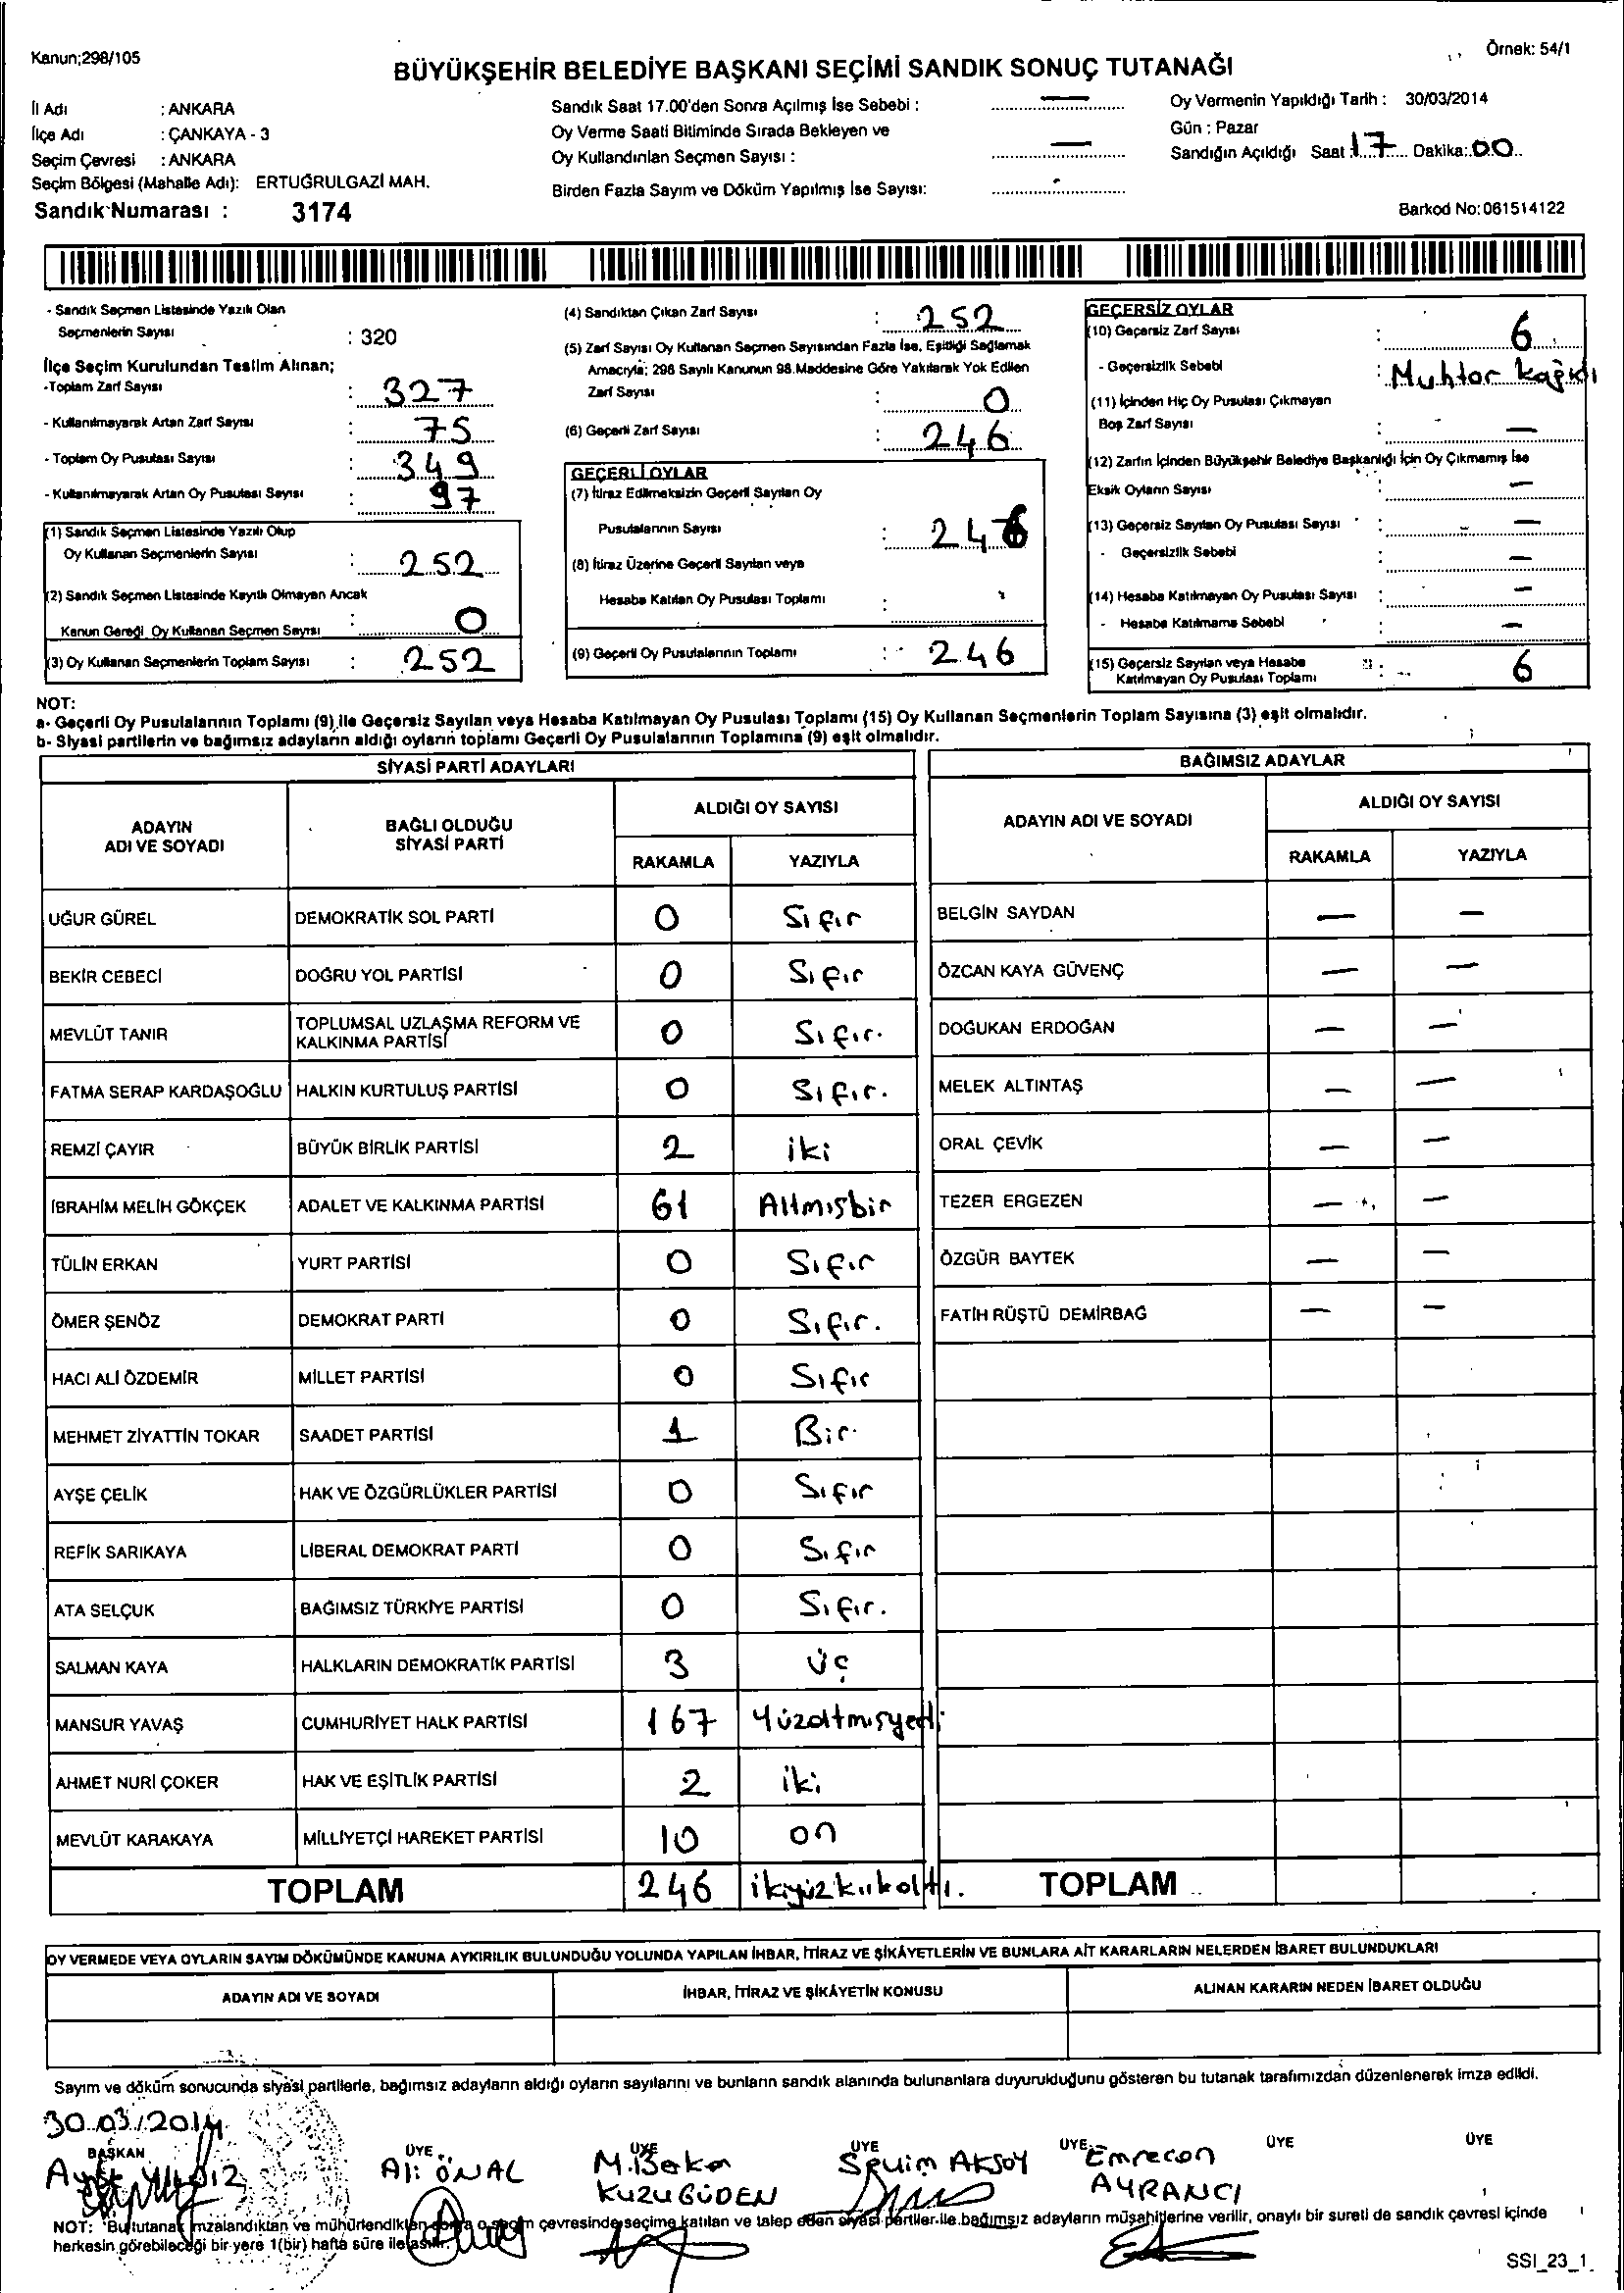 Kanun;298/105
Örnek: 54/1
BÜYÜKŞEHİR BELEDİYE BAŞKANI SEÇİMİ SANDIK SONUÇ TUTANAĞI
İl Adı : ANKARA
İlçe Adı : ÇANKAYA - 3
Seçim Çevresi : ANKARA
Seçim Bölgesi (Mahalle Adı): ERTUĞRULGAZİ MAH.
Sandık Numarası : 3174
Sandık Saat 17.00'den Sonra Açılmış İse Sebebi : —
Oy Verme Saati Bitiminde Sırada Bekleyen ve
Oy Kullandırılan Seçmen Sayısı : —
Birden Fazla Sayım ve Döküm Yapılmış İse Sayısı:
Oy Vermenin Yapıldığı Tarih : 30/03/2014
Gün : Pazar
Sandığın Açıldığı Saat : 17 Dakika: 00
Barkod No: 061514122
- Sandık Seçmen Listesinde Yazılı Olan
Seçmenlerin Sayısı : 320
İlçe Seçim Kurulundan Teslim Alınan;
-Toplam Zarf Sayısı : 327
- Kullanılmayarak Artan Zarf Sayısı : 75
- Toplam Oy Pusulası Sayısı : 349
- Kullanılmayarak Artan Oy Pusulası Sayısı : 97
(1) Sandık Seçmen Listesinde Yazılı Olup
Oy Kullanan Seçmenlerin Sayısı : 252
(2) Sandık Seçmen Listesinde Kayıtlı Olmayan Ancak
Kanun Gereği Oy Kullanan Seçmen Sayısı : 0
(3) Oy Kullanan Seçmenlerin Toplam Sayısı : 252
(4) Sandıktan Çıkan Zarf Sayısı : 252
(5) Zarf Sayısı Oy Kullanan Seçmen Sayısından Fazla İse, Eşitliği Sağlamak
Amacıyla; 298 Sayılı Kanunun 98.Maddesine Göre Yakılarak Yok Edilen
Zarf Sayısı : 0
(6) Geçerli Zarf Sayısı : 246
GEÇERLİ OYLAR
(7) İtiraz Edilmeksizin Geçerli Sayılan Oy
Pusulalarının Sayısı : 246
(8) İtiraz Üzerine Geçerli Sayılan veya
Hesaba Katılan Oy Pusulası Toplamı :
(9) Geçerli Oy Pusulalarının Toplamı : 246
GEÇERSİZ OYLAR
(10) Geçersiz Zarf Sayısı : 6
- Geçersizlik Sebebi : Muhtar kağıdı
(11) İçinden Hiç Oy Pusulası Çıkmayan
Boş Zarf Sayısı : —
(12) Zarfın İçinden Büyükşehir Belediye Başkanlığı İçin Oy Çıkmamış İse
Eksik Oyların Sayısı : —
(13) Geçersiz Sayılan Oy Pusulası Sayısı : —
- Geçersizlik Sebebi : —
(14) Hesaba Katılmayan Oy Pusulası Sayısı : —
- Hesaba Katılmama Sebebi : —
(15) Geçersiz Sayılan veya Hesaba
Katılmayan Oy Pusulası Toplamı : 6
NOT:
a- Geçerli Oy Pusulalarının Toplamı (9) ile Geçersiz Sayılan veya Hesaba Katılmayan Oy Pusulası Toplamı (15) Oy Kullanan Seçmenlerin Toplam Sayısına (3) eşit olmalıdır.
b- Siyasi partilerin ve bağımsız adayların aldığı oyların toplamı Geçerli Oy Pusulalarının Toplamına (9) eşit olmalıdır.
SİYASİ PARTİ ADAYLARI
ADAYIN ADI VE SOYADI
BAĞLI OLDUĞU SİYASİ PARTİ
ALDIĞI OY SAYISI
RAKAMLA YAZIYLA
UĞUR GÜREL DEMOKRATİK SOL PARTİ 0 Sıfır
BEKİR CEBECİ DOĞRU YOL PARTİSİ 0 Sıfır
MEVLÜT TANIR TOPLUMSAL UZLAŞMA REFORM VE KALKINMA PARTİSİ 0 Sıfır.
FATMA SERAP KARDAŞOĞLU HALKIN KURTULUŞ PARTİSİ 0 Sıfır.
REMZİ ÇAYIR BÜYÜK BİRLİK PARTİSİ 2 iki
İBRAHİM MELİH GÖKÇEK ADALET VE KALKINMA PARTİSİ 61 Altmışbir
TÜLİN ERKAN YURT PARTİSİ 0 Sıfır
ÖMER ŞENÖZ DEMOKRAT PARTİ 0 Sıfır.
HACI ALİ ÖZDEMİR MİLLET PARTİSİ 0 Sıfır
MEHMET ZİYATTİN TOKAR SAADET PARTİSİ 1 Bir
AYŞE ÇELİK HAK VE ÖZGÜRLÜKLER PARTİSİ 0 Sıfır
REFİK SARIKAYA LİBERAL DEMOKRAT PARTİ 0 Sıfır
ATA SELÇUK BAĞIMSIZ TÜRKİYE PARTİSİ 0 Sıfır.
SALMAN KAYA HALKLARIN DEMOKRATİK PARTİSİ 3 üç
MANSUR YAVAŞ CUMHURİYET HALK PARTİSİ 167 Yüzaltmışyedi
AHMET NURİ ÇOKER HAK VE EŞİTLİK PARTİSİ 2 iki
MEVLÜT KARAKAYA MİLLİYETÇİ HAREKET PARTİSİ 10 on
TOPLAM 246 ikiyüzkırkaltı.
BAĞIMSIZ ADAYLAR
ADAYIN ADI VE SOYADI
ALDIĞI OY SAYISI
RAKAMLA YAZIYLA
BELGİN SAYDAN — —
ÖZCAN KAYA GÜVENÇ — —
DOĞUKAN ERDOĞAN — —
MELEK ALTINTAŞ — —
ORAL ÇEVİK — —
TEZER ERGEZEN — —
ÖZGÜR BAYTEK — —
FATİH RÜŞTÜ DEMİRBAĞ — —
TOPLAM
OY VERMEDE VEYA OYLARIN SAYIM DÖKÜMÜNDE KANUNA AYKIRILIK BULUNDUĞU YOLUNDA YAPILAN İHBAR, İTİRAZ VE ŞİKÂYETLERİN VE BUNLARA AİT KARARLARIN NELERDEN İBARET BULUNDUKLARI
ADAYIN ADI VE SOYADI
İHBAR, İTİRAZ VE ŞİKÂYETİN KONUSU
ALINAN KARARIN NEDEN İBARET OLDUĞU
Sayım ve döküm sonucunda siyasi partilerle, bağımsız adayların aldığı oyların sayılarını ve bunların sandık alanında bulunanlara duyurulduğunu gösteren bu tutanak tarafımızdan düzenlenerek imza edildi.
30.03.2014
BAŞKAN ÜYE ÜYE ÜYE ÜYE ÜYE ÜYE
Yıldız
Ali ÖNAL
M.Berka KUZUGÜDEN
Sevim AKSOY
Emrecan AYRANCI
NOT: Bu tutanak imzalandıktan ve mühürlendikten sonra o seçim çevresinde seçime katılan ve talep eden siyasi partiler ile bağımsız adayların müşahitlerine verilir, onaylı bir sureti de sandık çevresi içinde
herkesin görebileceği bir yere 1(bir) hafta süre ile asılır.
SSI_23_1